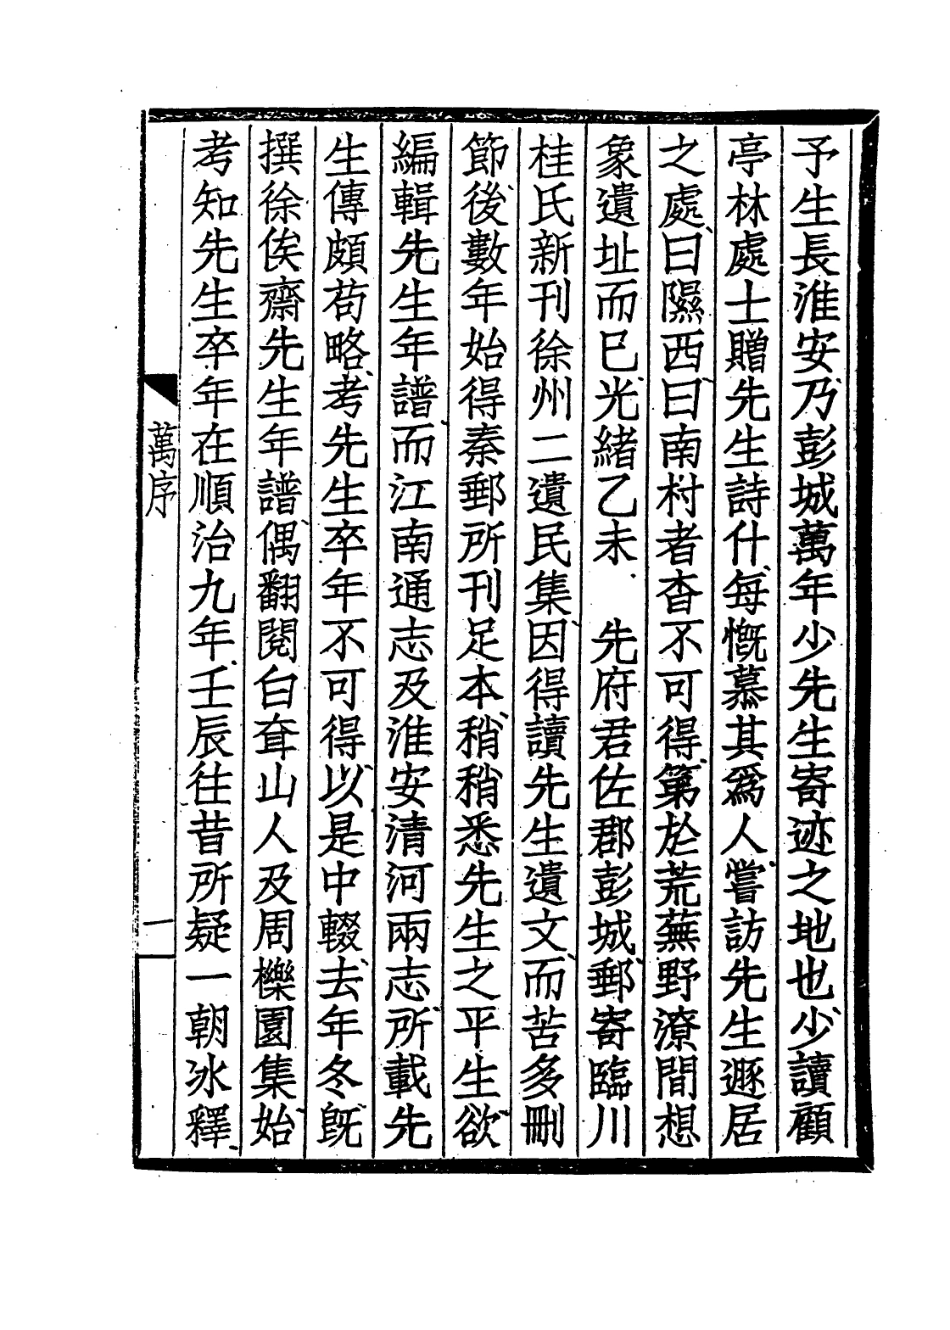 予生長淮安乃彭城萬年少先生寄迹之地也少讀顧
亭林處士贈先生詩什每慨慕其爲人嘗訪先生遯居
之處曰隰西曰南村者杳不可得第於荒蕪野潦間想
象遺址而已光緒乙未　先府君佐郡彭城郵寄臨川
桂氏新刊徐州二遺民集因得讀先生遺文而苦多刪
節後數年始得秦郵所刊足本稍稍悉先生之平生欲
編輯先生年譜而江南通志及淮安清河兩志所載先
生傳頗苟略考先生卒年不可得以是中輟去年冬既
撰徐俟齋先生年譜偶翻閱白耷山人及周櫟園集始
考知先生卒年在順治九年壬辰往昔所疑一朝冰釋
萬序
一